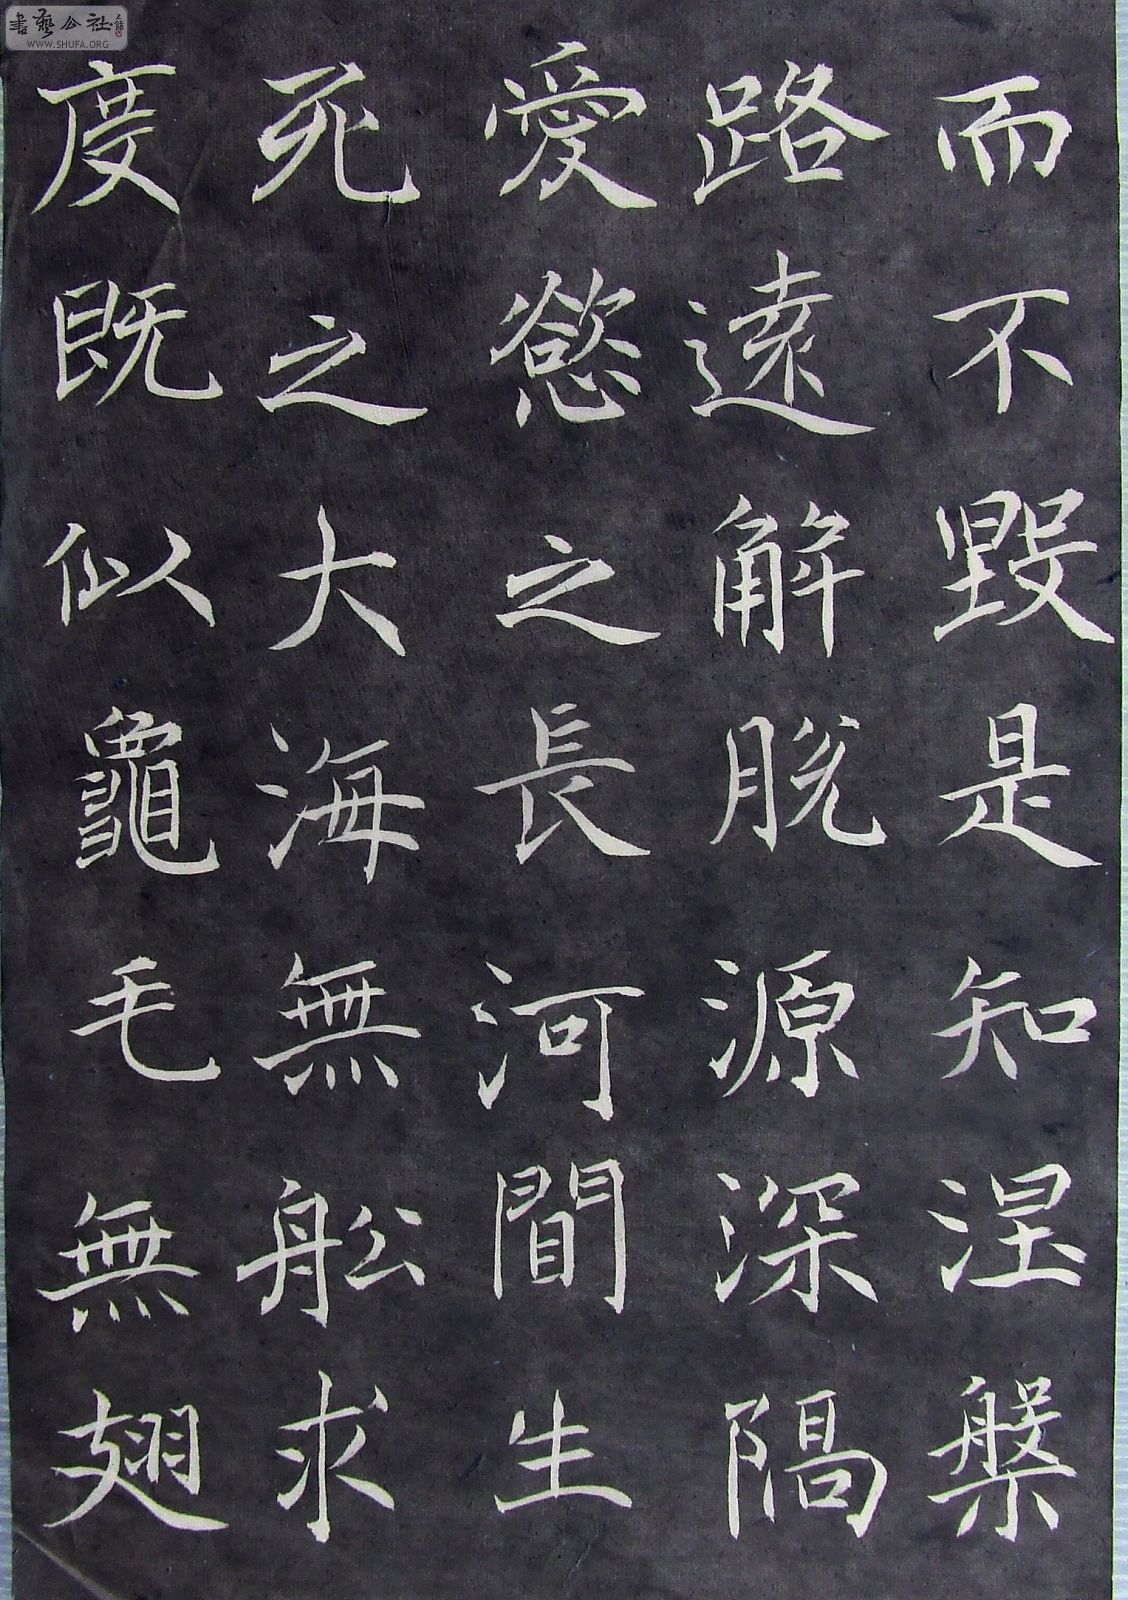 書藝公社
WWW.SHUFA.ORG
而不毀是知涅槃
路遠解脫源深隔
愛慾之長河間生
死之大海無舩求
度既似龜毛無翅